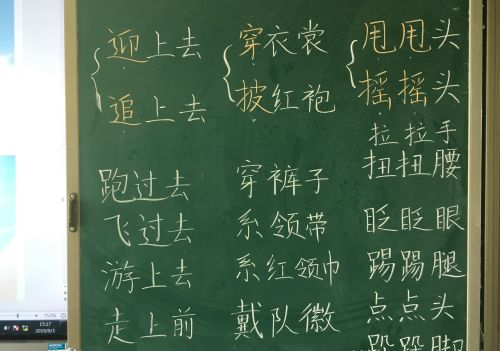 迎上去
追上去
跑过去
飞过去
游上去
走上前
穿衣裳
披红袍
穿裤子
系领带
系红领巾
戴队徽
甩甩头
摇摇头
拉拉手
扭扭腰
眨眨眼
踢踢腿
点点头
跺跺脚
752%
15:17
2019/9/3